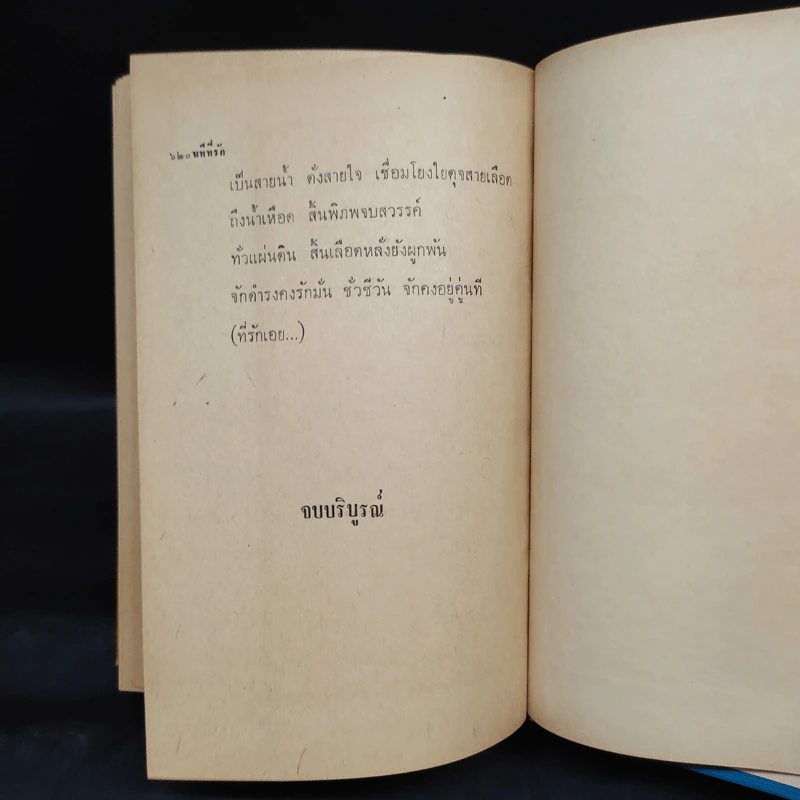 ๖๒๐ นทีที่รัก
เป็นสายน้ำ ดั่งสายใจ เชื่อมโยงใยดุจสายเลือด
ถึงน้ำเหือด สิ้นพิภพจบสวรรค์
ทั่วแผ่นดิน สิ้นเลือดหลั่งยังผูกพัน
จักดำรงคงรักมั่น ชั่วชีวัน จักคงอยู่คู่นที
(ที่รักเอย...)
จบบริบูรณ์